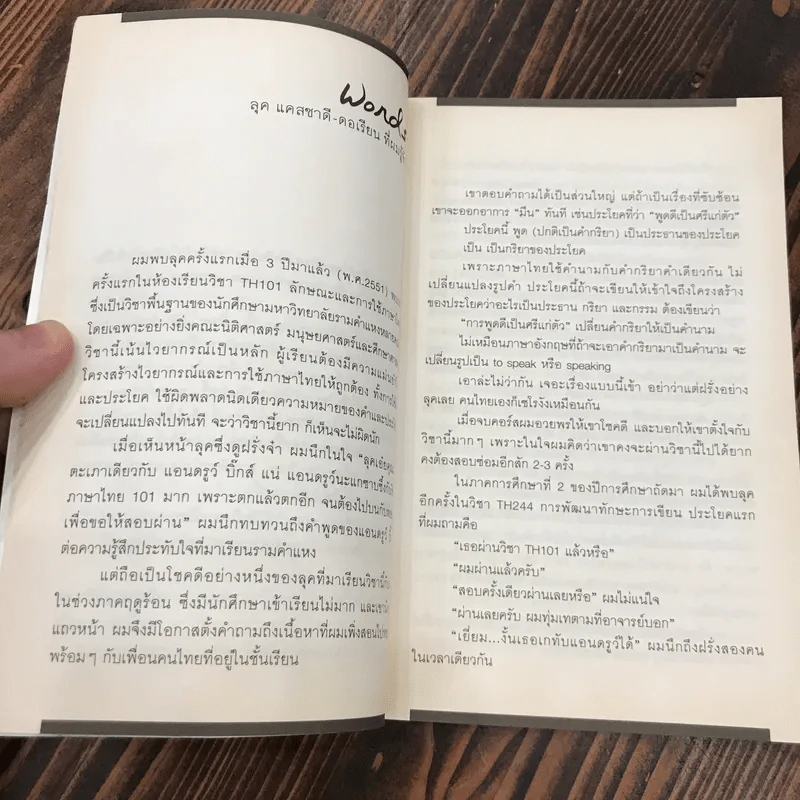 Words
ลุค แคสซาดี-ดอเรียน ที่ผมรู้จัก
ผมพบลุคครั้งแรกเมื่อ 3 ปีมาแล้ว (พ.ศ.2551)
ครั้งแรกในห้องเรียนวิชา TH101 ลักษณะและการใช้ภาษา
ซึ่งเป็นวิชาพื้นฐานของนักศึกษามหาวิทยาลัยรามคำแหงหลาย
โดยเฉพาะอย่างยิ่งคณะนิติศาสตร์ มนุษยศาสตร์และศึกษา
วิชานี้เน้นไวยากรณ์เป็นหลัก ผู้เรียนต้องมีความแม่น
โครงสร้างไวยากรณ์และการใช้ภาษาไทยให้ถูกต้อง ทั้งการ
และประโยค ใช้ผิดพลาดนิดเดียวความหมายของคำและ
จะเปลี่ยนแปลงไปทันที จะว่าวิชานี้ยาก ก็เห็นจะไม่ผิดนัก
เมื่อเห็นหน้าลุคซึ่งดูฝรั่งจ๋า ผมนึกในใจ “ลุคเอ๋ย
ตะเภาเดียวกับ แอนดรูว์ บิ๊กส์ แน่ แอนดรูว์นะแกซาบซึ้ง
ภาษาไทย 101 มาก เพราะตกแล้วตกอีก จนต้องไปบนกับ
เพื่อขอให้สอบผ่าน” ผมนึกทบทวนถึงคำพูดของแอนดรูว์
ต่อความรู้สึกประทับใจที่มาเรียนรามคำแหง
แต่ถือเป็นโชคดีอย่างหนึ่งของลุคที่มาเรียนวิชานี้
ในช่วงภาคฤดูร้อน ซึ่งมีนักศึกษาเข้าเรียนไม่มาก และเขา
แถวหน้า ผมจึงมีโอกาสตั้งคำถามถึงเนื้อหาที่ผมเพิ่งสอนไป
พร้อมๆ กับเพื่อนคนไทยที่อยู่ในชั้นเรียน
เขาตอบคำถามได้เป็นส่วนใหญ่ แต่ถ้าเป็นเรื่องที่ซับซ้อน
เขาจะออกอาการ “มึน” ทันที เช่นประโยคที่ว่า “พูดดีเป็นศรีแก่ตัว”
ประโยคนี้ พูด (ปกติเป็นคำกริยา) เป็นประธานของประโยค
เป็น เป็นกริยาของประโยค
เพราะภาษาไทยใช้คำนามกับคำกริยาคำเดียวกัน ไม่
เปลี่ยนแปลงรูปคำ ประโยคนี้ถ้าจะเขียนให้เข้าใจถึงโครงสร้าง
ของประโยคว่าอะไรเป็นประธาน กริยา และกรรม ต้องเขียนว่า
“การพูดดีเป็นศรีแก่ตัว” เปลี่ยนคำกริยาให้เป็นคำนาม
ไม่เหมือนภาษาอังกฤษที่ถ้าจะเอาคำกริยามาเป็นคำนาม จะ
เปลี่ยนรูปเป็น to speak หรือ speaking
เอาล่ะไม่ว่ากัน เจอะเรื่องแบบนี้เข้า อย่าว่าแต่ฝรั่งอย่าง
ลุคเลย คนไทยเองก็เซโรงังเหมือนกัน
เมื่อจบคอร์สผมอวยพรให้เขาโชคดี และบอกให้เขาตั้งใจกับ
วิชานี้มากๆ เพราะในใจผมคิดว่าเขาคงจะผ่านวิชานี้ไปได้ยาก
คงต้องสอบซ่อมอีกสัก 2-3 ครั้ง
ในภาคการศึกษาที่ 2 ของปีการศึกษาถัดมา ผมได้พบลุค
อีกครั้งในวิชา TH244 การพัฒนาทักษะการเขียน ประโยคแรก
ที่ผมถามคือ
“เธอผ่านวิชา TH101 แล้วหรือ”
“ผมผ่านแล้วครับ”
“สอบครั้งเดียวผ่านเลยหรือ” ผมไม่แน่ใจ
“ผ่านเลยครับ ผมทุ่มเทตามที่อาจารย์บอก”
“เยี่ยม...งั้นเธอเกทับแอนดรูว์ได้” ผมนึกถึงฝรั่งสองคน
ในเวลาเดียวกัน